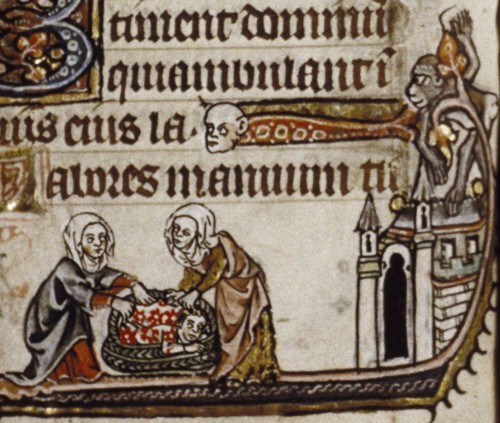 timent dominū
qui ambulant ī
uiis eius la
Labores manuum tu